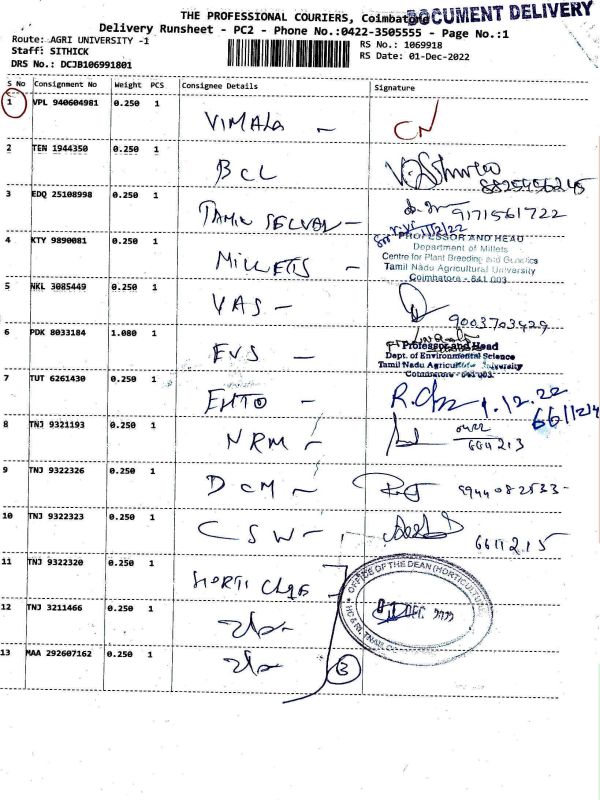 THE PROFESSIONAL COURIERS, Coimbatore
DOCUMENT DELIVERY
Delivery Runsheet - PC2 - Phone No.:0422-3505555 - Page No.:1
Route: AGRI UNIVERSITY -1
RS No.: 1069918
Staff: SITHICK
RS Date: 01-Dec-2022
DRS No.: DCJB106991801
S No Consignment No Weight PCS Consignee Details Signature
1 VPL 940604981 0.250 1 VIMALA - CN
2 TEN 1944350 0.250 1 BCL
8825456245
3 EDQ 25108998 0.250 1 TAMIL SELVAN - 9171561722
4 KTY 9890081 0.250 1 MILLETS -
PROFESSOR AND HEAD
Department of Millets
Centre for Plant Breeding and Genetics
Tamil Nadu Agricultural University
Coimbatore - 641 003
5 NKL 3085449 0.250 1 VAS -
9003703429
6 PDK 8033184 1.080 1 EVS -
Professor and Head
Dept. of Environmental Science
Tamil Nadu Agricultural University
Coimbatore - 641 003.
7 TUT 6261430 0.250 1 1.12.22
8 TNJ 9321193 0.250 1 NRM -
0422
6611213
9 TNJ 9322326 0.250 1 DCM - 9944082533-
10 TNJ 9322323 0.250 1 CSW -
6611215
11 TNJ 9322320 0.250 1 HORTI
OFFICE OF THE DEAN (HORTICULTURE)
12 TNJ 3211466 0.250 1
01 DEC 2022
13 MAA 292607162 0.250 1
3